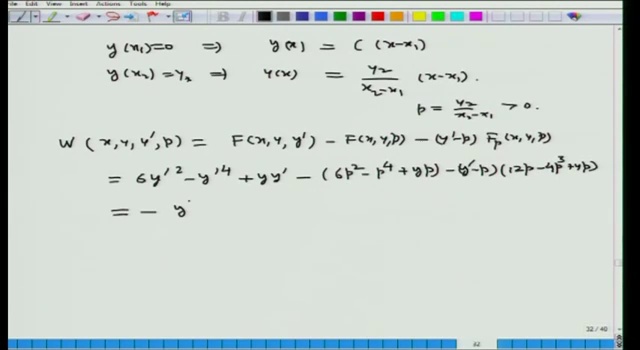 File Edit View Insert Actions Tools Help
y(x₁)=0 ⇒ y(x) = C (x-x₁)
y(x₂)=y₂ ⇒ y(x) = y₂/(x₂-x₁) (x-x₁).
p = y₂/(x₂-x₁) > 0.
W (x, y, y', p) = F(x, y, y') - F(x, y, p) - (y'-p) F_p (x, y, p)
= 6y'² - y'⁴ + yy' - (6p² - p⁴ + yp) - (y'-p) (12p - 4p³ + yp)
= - y'
32 / 40
62